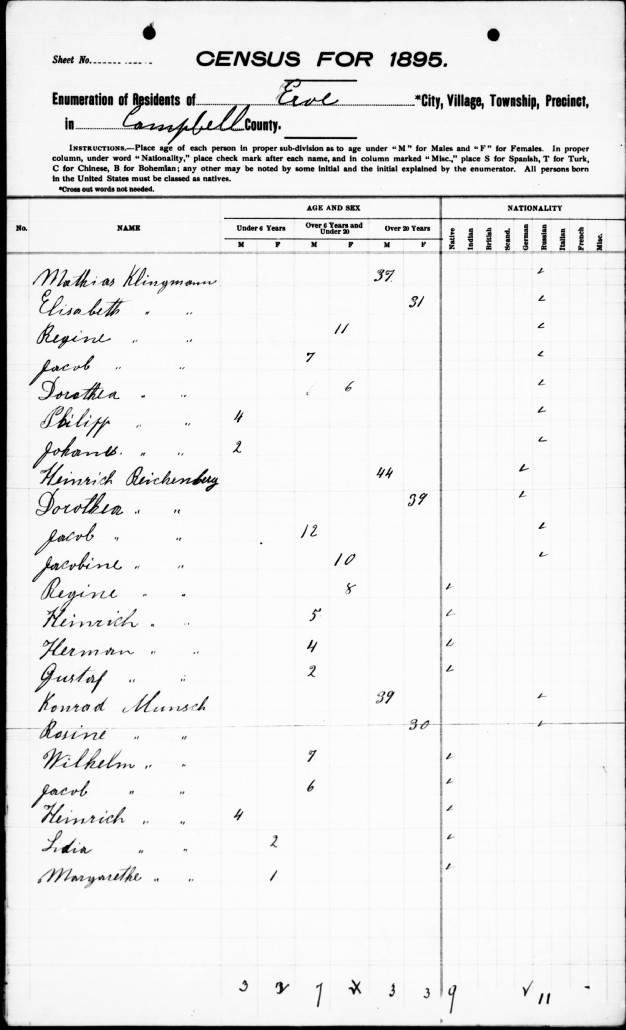 Sheet No.
CENSUS FOR 1895.
Enumeration of Residents of Erol *City, Village, Township, Precinct,
in Campbell County.
INSTRUCTIONS.—Place age of each person in proper sub-division as to age under "M" for Males and "F" for Females. In proper
column, under word "Nationality," place check mark after each name, and in column marked "Misc.," place S for Spanish, T for Turk,
C for Chinese, B for Bohemian; any other may be noted by some initial and the initial explained by the enumerator. All persons born
in the United States must be classed as natives.
*Cross out words not needed.
AGE AND SEX NATIONALITY
No. NAME Under 6 Years Over 6 Years and Under 20 Over 20 Years Native Indian British Scand. German Russian Italian French Misc.
M F M F M F
Mathias Klingmann 37 ✓
Elisabeth " " 31 ✓
Regine " " 11 ✓
Jacob " " 7 ✓
Dorothea " " 6 ✓
Philipp " " 4 ✓
Johannes " " 2 ✓
Heinrich Reichenberg 44 ✓
Dorothea " " 39 ✓
Jacob " " 12 ✓
Jacobine " " 10 ✓
Regine " " 8 ✓
Heinrich " " 5 ✓
Herman " " 4 ✓
Gustaf " " 2 ✓
Konrad Munsch 39 ✓
Rosine " " 30 ✓
Wilhelm " " 7 ✓
Jacob " " 6 ✓
Heinrich " " 4 ✓
Lidia " " 2 ✓
Margarethe " " 1 ✓
3 7 3 3 9 ✓ 11 -